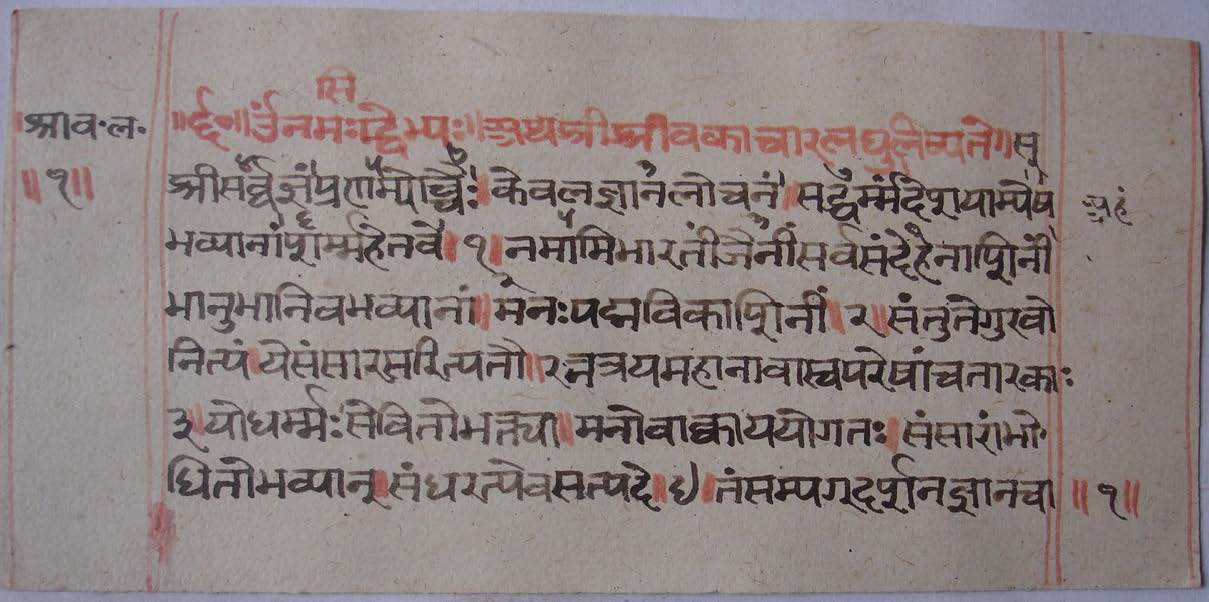 सि
श्राव॰ल॰ ॥र्द॰॥ ॐनमःद्धेभ्यः॥ अथ श्रीश्रावकाचारलघुलिख्यते॥ स्
॥१॥ श्रीसर्वज्ञंप्रणम्योच्चैः॥ केवलज्ञानलोचनं॥ सद्धर्म्मंदेशयाम्येष
भव्यानांशर्म्महेतवे॥ १॥ नमामिभारतींजैनींसर्वसंदेहनाशिनीं
भानुभानिवभव्यानां॥ मनःपद्मविकाशिनीं॥ २॥ संतुतेगुरवो
नित्यं॥ येसंसारसरित्पतौ॥ रत्नत्रयमहानावास्वपरेषांचतारकाः
३॥ योधर्म्मःसेवितोभक्त्या॥ मनोवाक्काययोगतः॥ संसारांभो॰
धितोभव्यान्॥ संधरत्येवसत्पदे॥ ४॥ तंसम्यग्दर्शनज्ञानचा ॥१॥